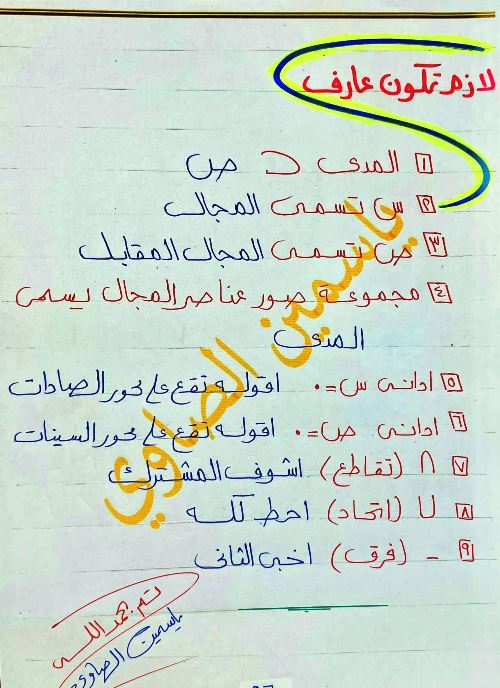 لازم تكون عارف
١ المدى ⊃ ص
٢ س تسمى المجال
٣ ص تسمى المجال المقابل
٤ مجموعة صور عناصر المجال يسمى
المدى
٥ ادانى س=٠ اقوله تقع على محور الصادات
٦ ادانى ص=٠ اقوله تقع على محور السينات
٧ ∩ (تقاطع) اشوف المشترك
٨ ∪ (اتحاد) احط كله
٩ - (فرق) اخبى الثانى
ياسمين الصاوي
تم بحمد الله
ياسمين الصاوى